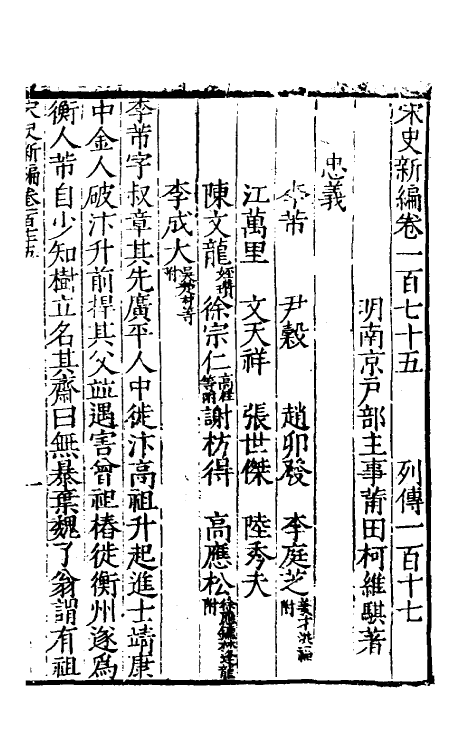 宋史新編卷一百七十五　列傳一百十七
明南京戶部主事莆田柯維騏著
忠義
李芾　尹穀　趙卯發　李庭芝姜才洪福附
江萬里　文天祥　張世傑　陸秀夫
陳文龍　徐宗仁　謝枋得　高應松
李成大附
李芾字叔章其先廣平人中徙汴高祖升起進士靖康
中金人破汴升前捍其父並遇害曾祖椿徙衡州遂爲
衡人芾自少知樹立名其齋曰無暴棄魏了翁謂有祖
宋史新編卷一百七十五　一